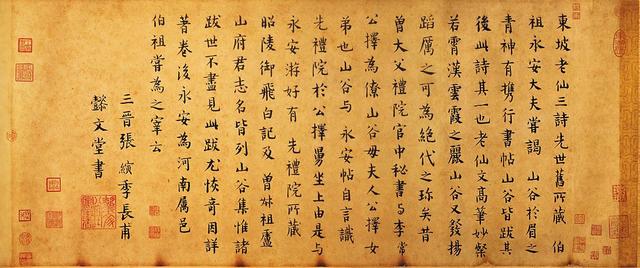 東坡老仙三詩先世舊所藏 伯
祖永安大夫嘗謁 山谷於眉之
青神有攜行書帖山谷皆跋其
後此詩其一也老仙文高筆妙粲
若霄漢雲霞之麗山谷又發揚
蹈厲之可為絕代之珍矣昔
曾大父禮院官中秘書与李常
公擇為僚山谷母夫人公擇女
弟也山谷与 永安帖自言識
先禮院於公擇舅坐上由是与
永安游好有 先禮院所藏
昭陵御飛白記及 曾叔祖盧
山府君志名皆列山谷集惟諸
跋世不盡見此跋尤恢奇因詳
著卷後永安為河南屬邑
伯祖嘗為之宰云
三晉張縯季長甫
懿文堂書